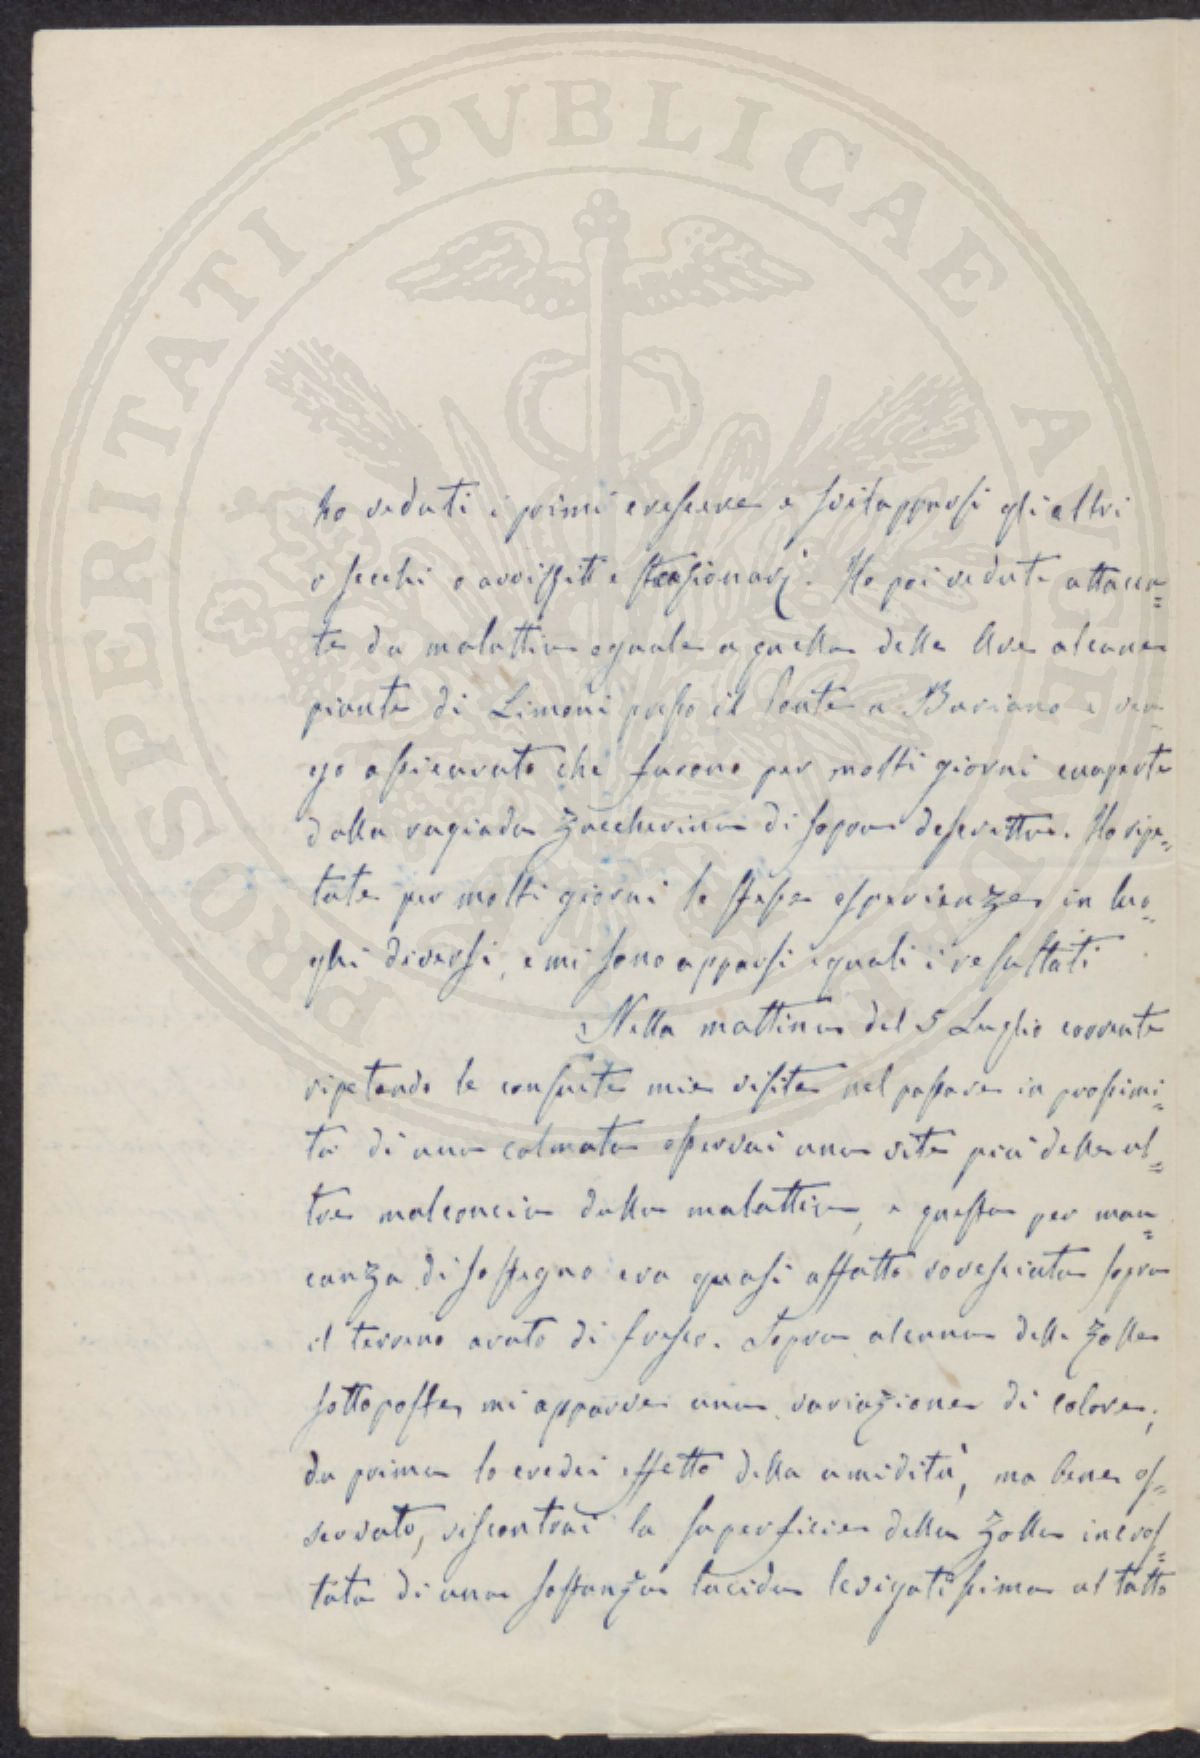 PROSPERITATI PUBLICAE AUGENDAE
ho veduti i primi crescere e svilapparsi gli altri
o secchi o avvissiti e stazionarj. Ho poi vedute attacca=
te da malattia eguale a quella delle Uve alcune
piante di Limoni presso il Ponte a Buriano e ven=
go assicurato che furono per molti giorni cuoperte
dalla rugiada zuccherina di sopra descritta. Ho ripe=
tute per molti giorni le stesse esperienze in luo=
ghi diversi, e mi sono apparsi eguali i resultati
Nella mattina del 5 Luglio corrente
ripetendo le consuete mie visite nel passare in prossimi=
tà di una colmata osservai una vite più delle al=
tre malconcia dalla malattia, e questa per man=
canza di sostegno era quasi affatto rovesciata sopra
il terreno arato di fresco. Sopra alcuna delle zolle
sottoposte mi apparve una variazione di colore,
da prima lo credei effetto della umidità, ma bene os=
servato, riscontrai la superficie della zolla incros=
tata di una sostanza lucida levigatissima al tatto